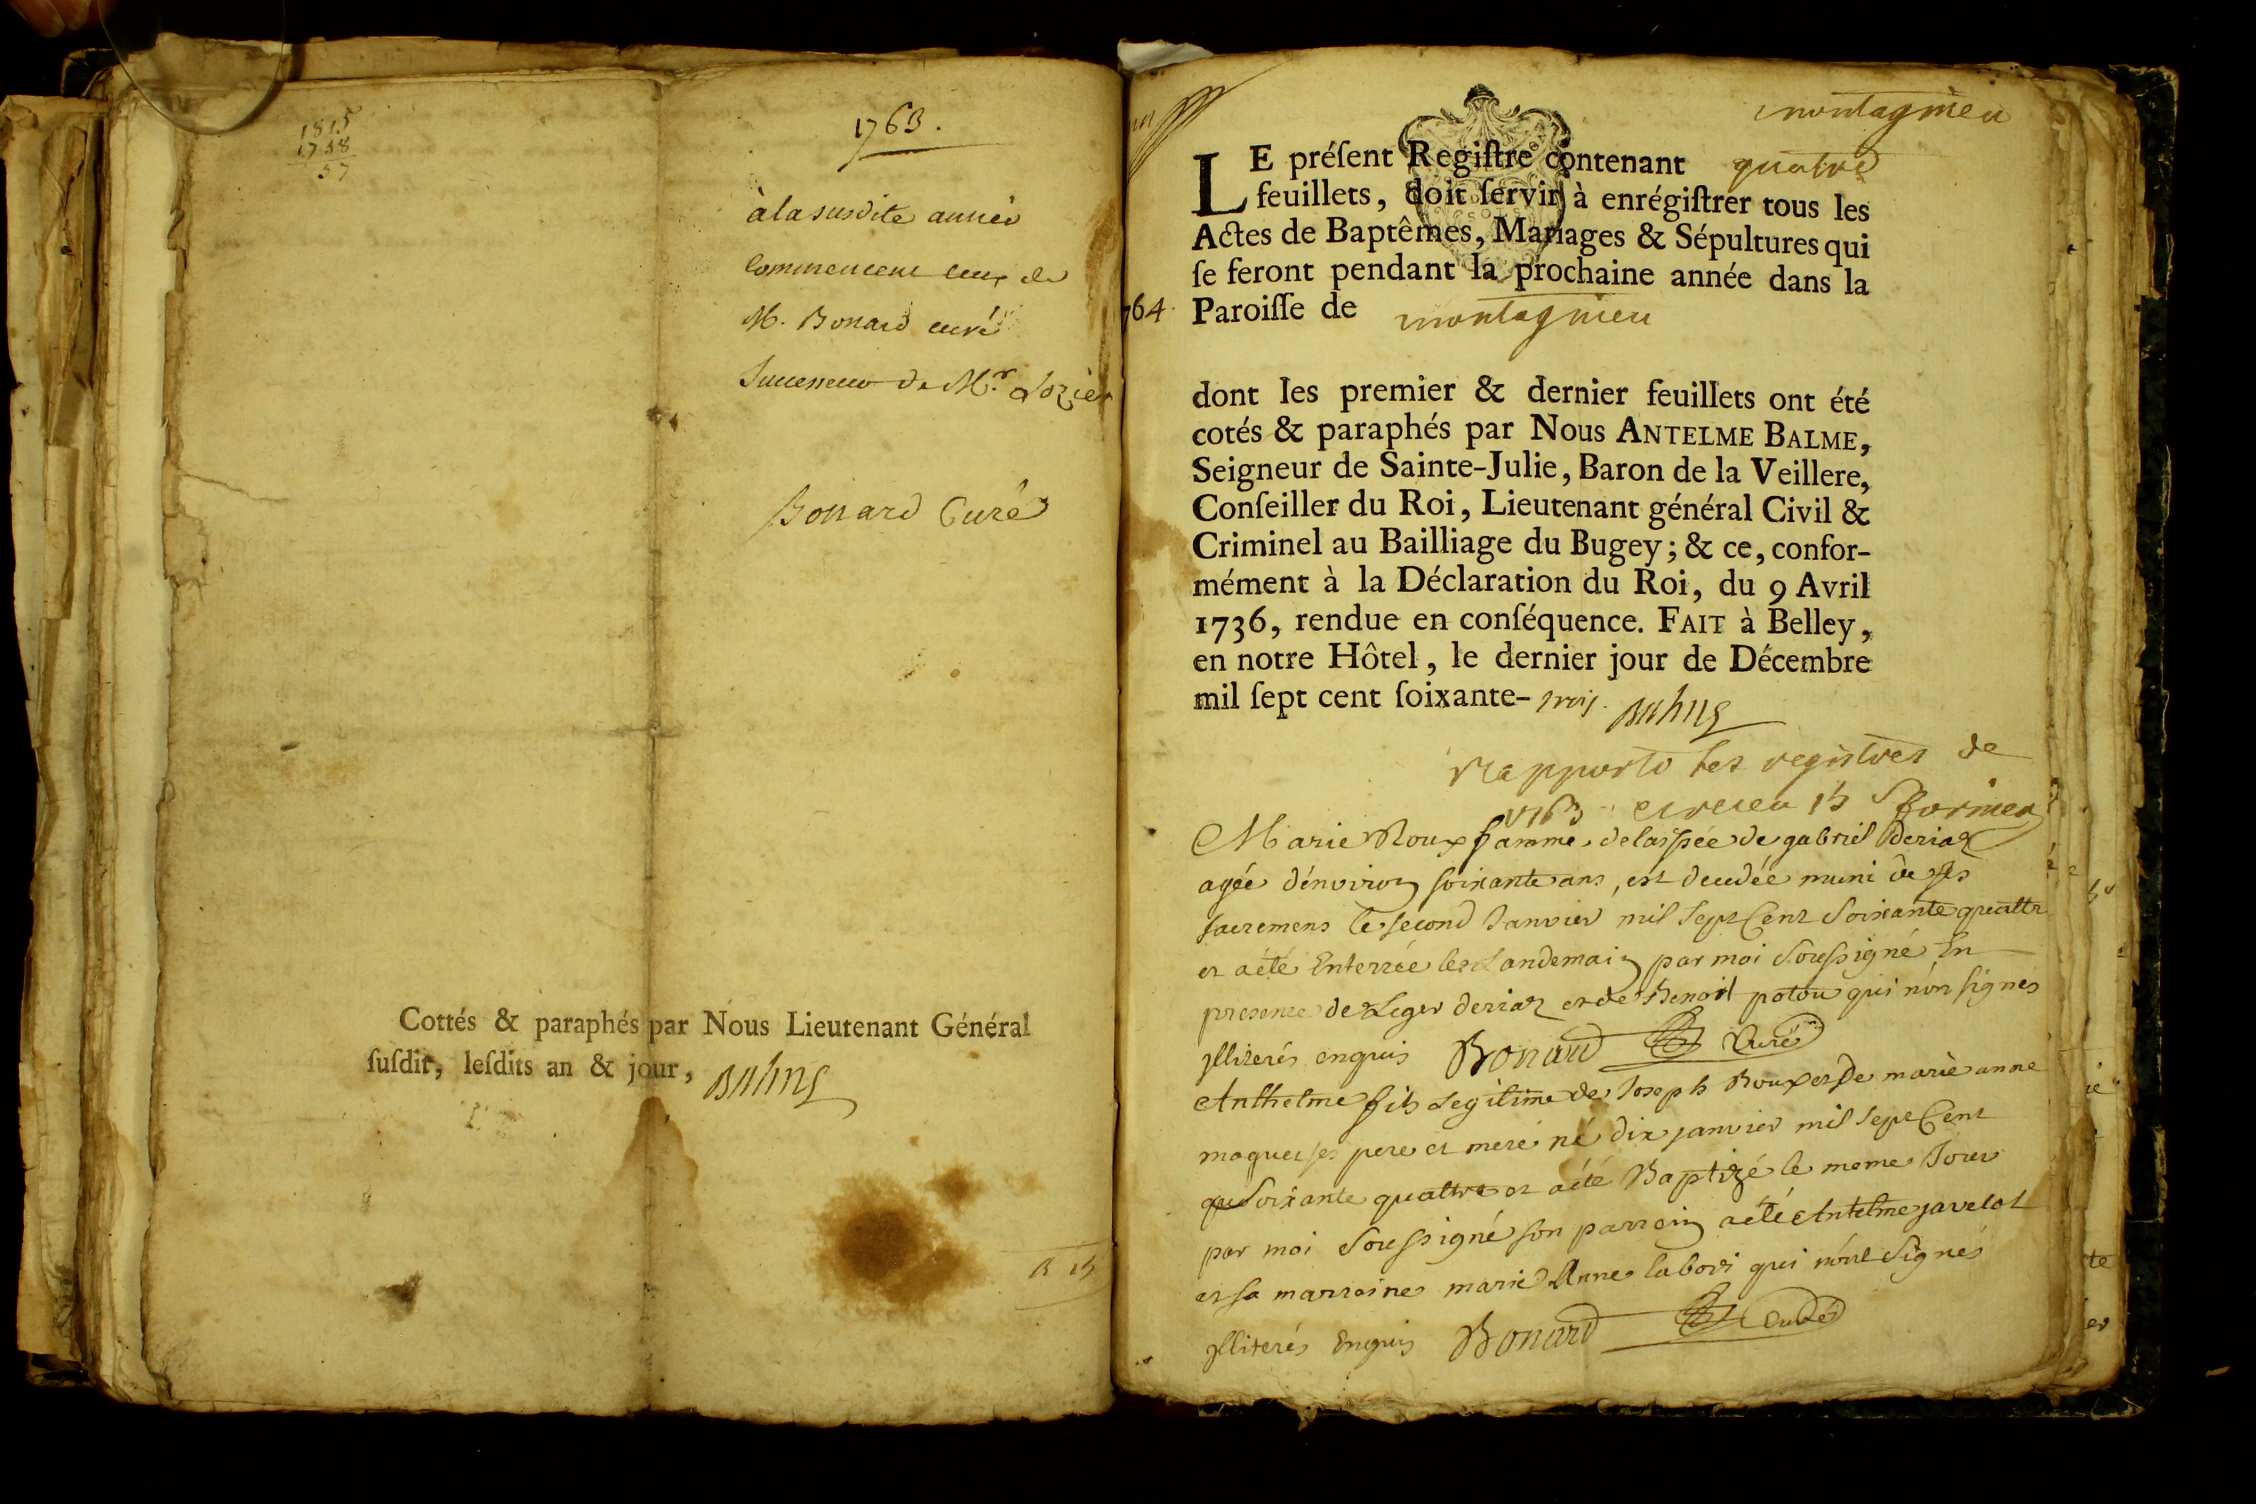 1815
1758
57
1763.
à la susdite année
commencent ceux de
M. Bonard curé
Successeur de Mr.
Bonard Curé
Cottés & paraphés par Nous Lieutenant Général
ſuſdit, leſdits an & jour,
montagnieu
LE préſent Regiſtre contenant quatre
feuillets, doit ſervir à enrégiſtrer tous les
Actes de Baptêmes, Mariages & Sépultures qui
ſe feront pendant la prochaine année dans la
764. Paroiſſe de montagnieu
dont les premier & dernier feuillets ont été
cotés & paraphés par Nous ANTELME BALME,
Seigneur de Sainte-Julie, Baron de la Veillere,
Conſeiller du Roi, Lieutenant général Civil &
Criminel au Bailliage du Bugey; & ce, confor-
mément à la Déclaration du Roi, du 9 Avril
1736, rendue en conſéquence. FAIT à Belley,
en notre Hôtel, le dernier jour de Décembre
mil ſept cent ſoixante- trois.
Rapporté les registres de
1763
Marie Roux famme delaissée de gabriel deriaz
agée dénviron soixante ans, est decedée muni de ses
sacremens le second Janvier mil Sept Cent Soixante quattre
et aété Enterrée le Landemain par moi Soussigné En
presence de Leger deriaz et de Benoit potou qui nón signés
yllìterés enquis Bonard Curé
Anthelme fils Legitime de Joseph Roux et De marie anne
ses pere et mere né dix janvier mil Sept Cent
Soixante quattre et aété Baptizé le meme Jour
par moi Soussigné son parrain aété Antelme javelot
et sa marraine marie Anne qui nónt Signés
yllìterés Enquis Bonard Curé